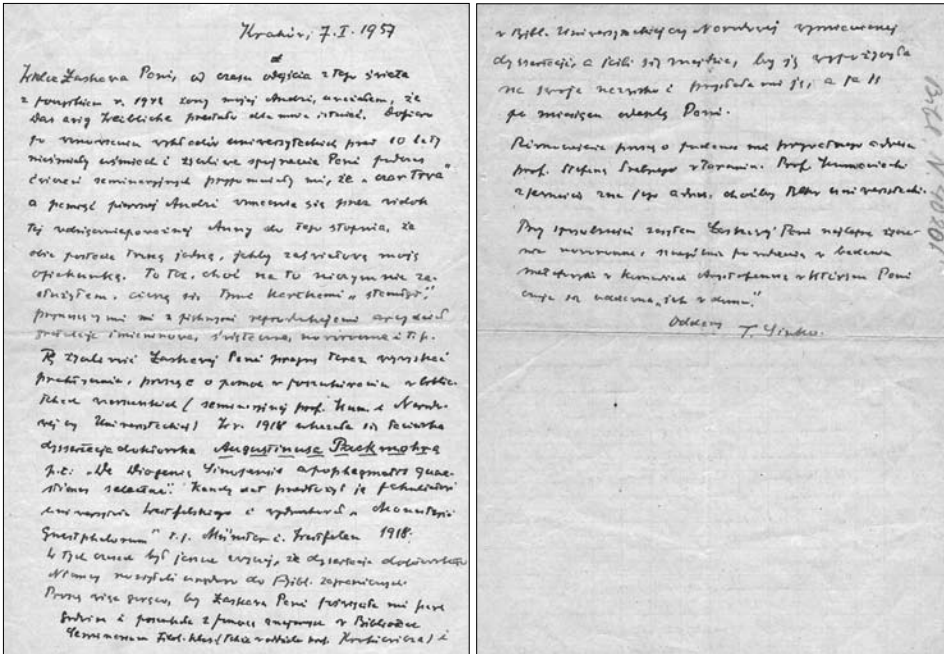 Kraków, 7.I.1957
Wielce Łaskawa Pani, od czasu odejścia z tego świata
z początkiem r. 1942 żony mojej Andzi, uważałem, że
das ewig Weibliche przestało dla mnie istnieć. Dopiero
po wznowieniu wykładów uniwersyteckich przed 10 laty
nieśmiały uśmiech i życzliwe spojrzenie Pani podczas
ćwiczeń seminaryjnych przypomniały mi, że
a pamięć pierwszej Andzi wzmacnia się przez widok
tej Anny do tego stopnia, że
obie postacie tworzą jedną, jakby zaświatową moją
opiekunkę. To też, choć na to niczym nie za-
służyłem, cieszę się Jej kartkami
z pięknymi reprodukcjami arcydzieł
gratulacje imieninowe, świąteczne, noworoczne i t.p.
Tę życzliwość Łaskawej Pani pragnę teraz wyzyskać
praktycznie, prosząc o pomoc w poszukiwaniu w biblio-
tekach warszawskich (seminaryjnej prof. Kum. i Narodo-
wej czy Uniwersyteckiej) W r. 1918 ukazała się łacińska
dyssertacja doktorska Augustinusa Packmohra
p.t. „De Diogenis Sinopensis apophthegmatis quae-
stiones selectae”. Kandydat przedłożył ją fakultetowi
uniwersytetu westfalskiego i wydrukował „Monasterii
Guestphalorum” t.j. Münster i. Westfalen 1918.
W tych czasach był jeszcze zwyczaj, że dyssertacje doktorskie
Niemcy rozsyłali urzędowo do Bibl. zagranicznych
Proszę więc gorąco, by Łaskawa Pani poświęciła mi parę
godzin i poszukała z pomocą znajomych w Bibliotece
Seminarium Filol. klas. i
w Bibl. Uniwersyteckiej czy Narodowej wymienionej
dyssertacji, a jeśli się znajdzie, by ją wypożyczyła
na swoje nazwisko i przysłała mi ją, a ja Jej
po miesiącu odeślę Pani.
Równocześnie proszę o podanie mi prywatnego adresu
prof. Stefana Srebrnego w Toruniu. Prof. Kumaniecki
z pewnością zna jego adres, choćby tylko uniwersytecki.
Przy sposobności zasyłam Łaskawej Pani najlepsze życze-
nia noworoczne, szczególnie powodzenia w badaniu
metaforyki w komediach Arystofanesa w których Pani
czuje się uddana „jak w domu”.
Oddany T. Sinko.